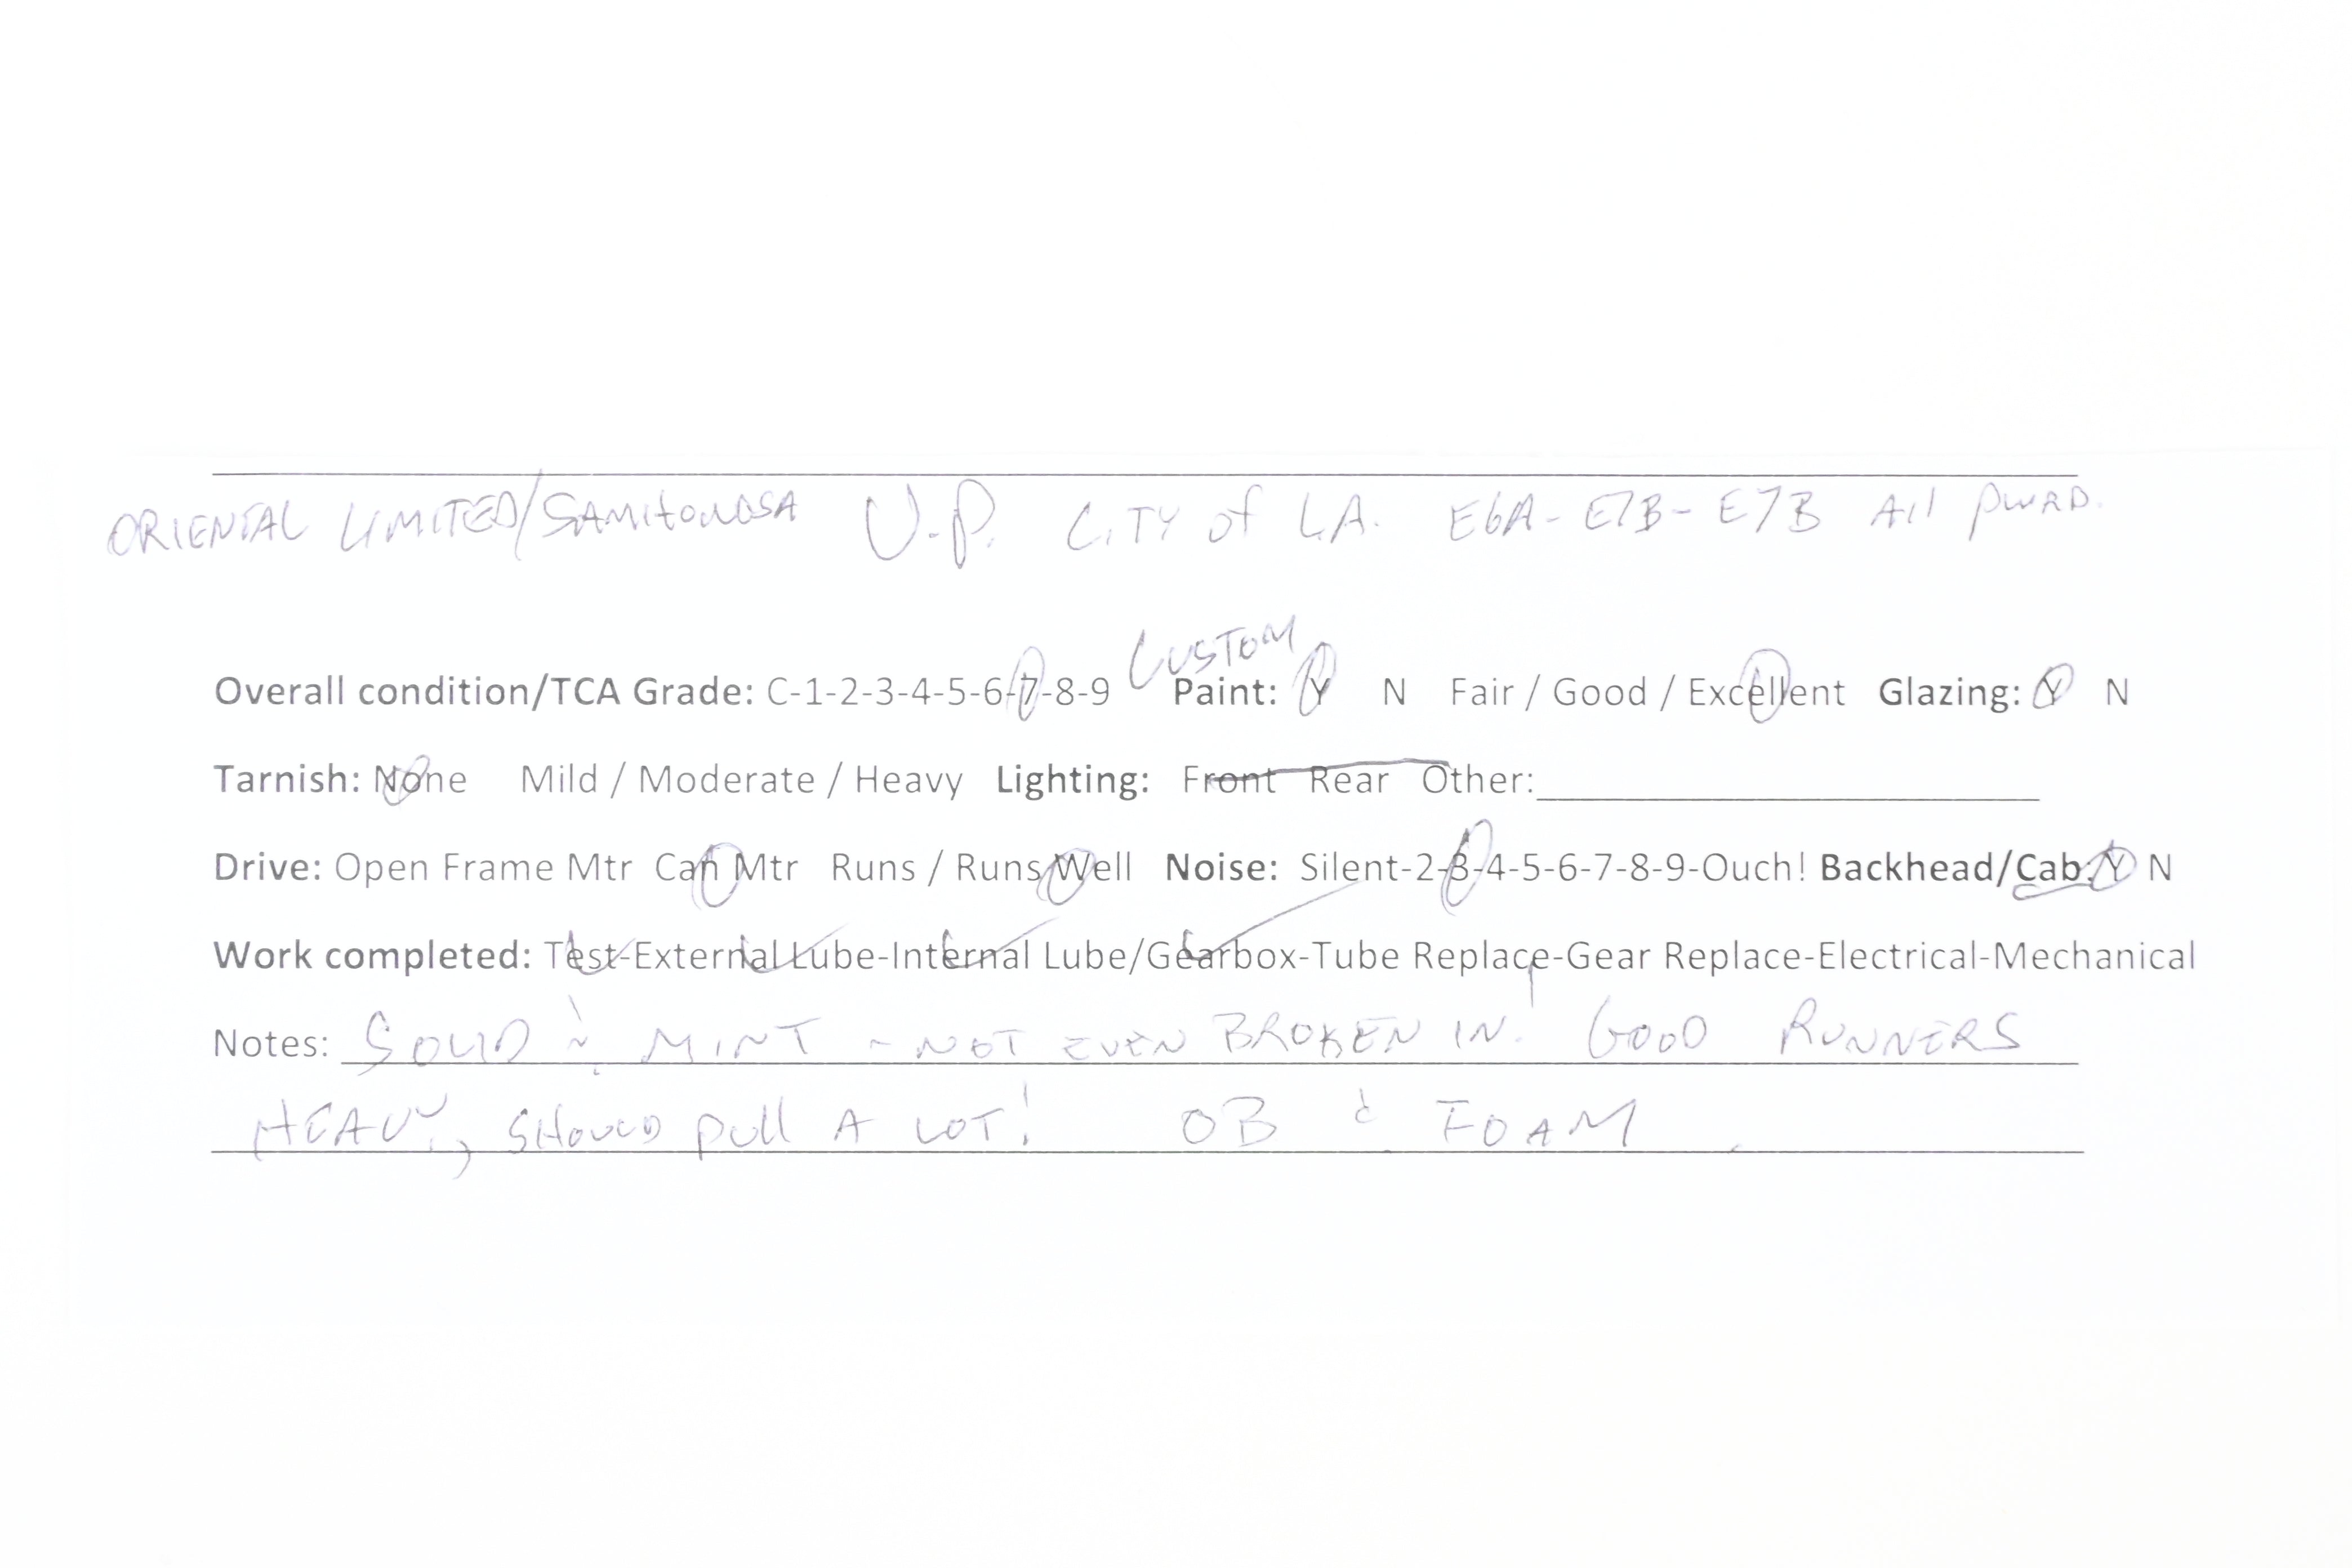 ORIENTAL LIMITED/SAMHONGSA U.P. CITY of L.A. E6A- E7B- E7B All PWRD.
CUSTOM
Overall condition/TCA Grade: C-1-2-3-4-5-6-7-8-9 Paint: Y N Fair / Good / Excellent Glazing: Y N
Tarnish: None Mild / Moderate / Heavy Lighting: Front Rear Other:
Drive: Open Frame Mtr Can Mtr Runs / Runs Well Noise: Silent-2-3-4-5-6-7-8-9-Ouch! Backhead/Cab: Y N
Work completed: Test-External Lube-Internal Lube/Gearbox-Tube Replace-Gear Replace-Electrical-Mechanical
Notes: SOLID & MINT - NOT EVEN BROKEN IN! GOOD RUNNERS
HEAVY, SHOULD pull A LOT! OB & FOAM